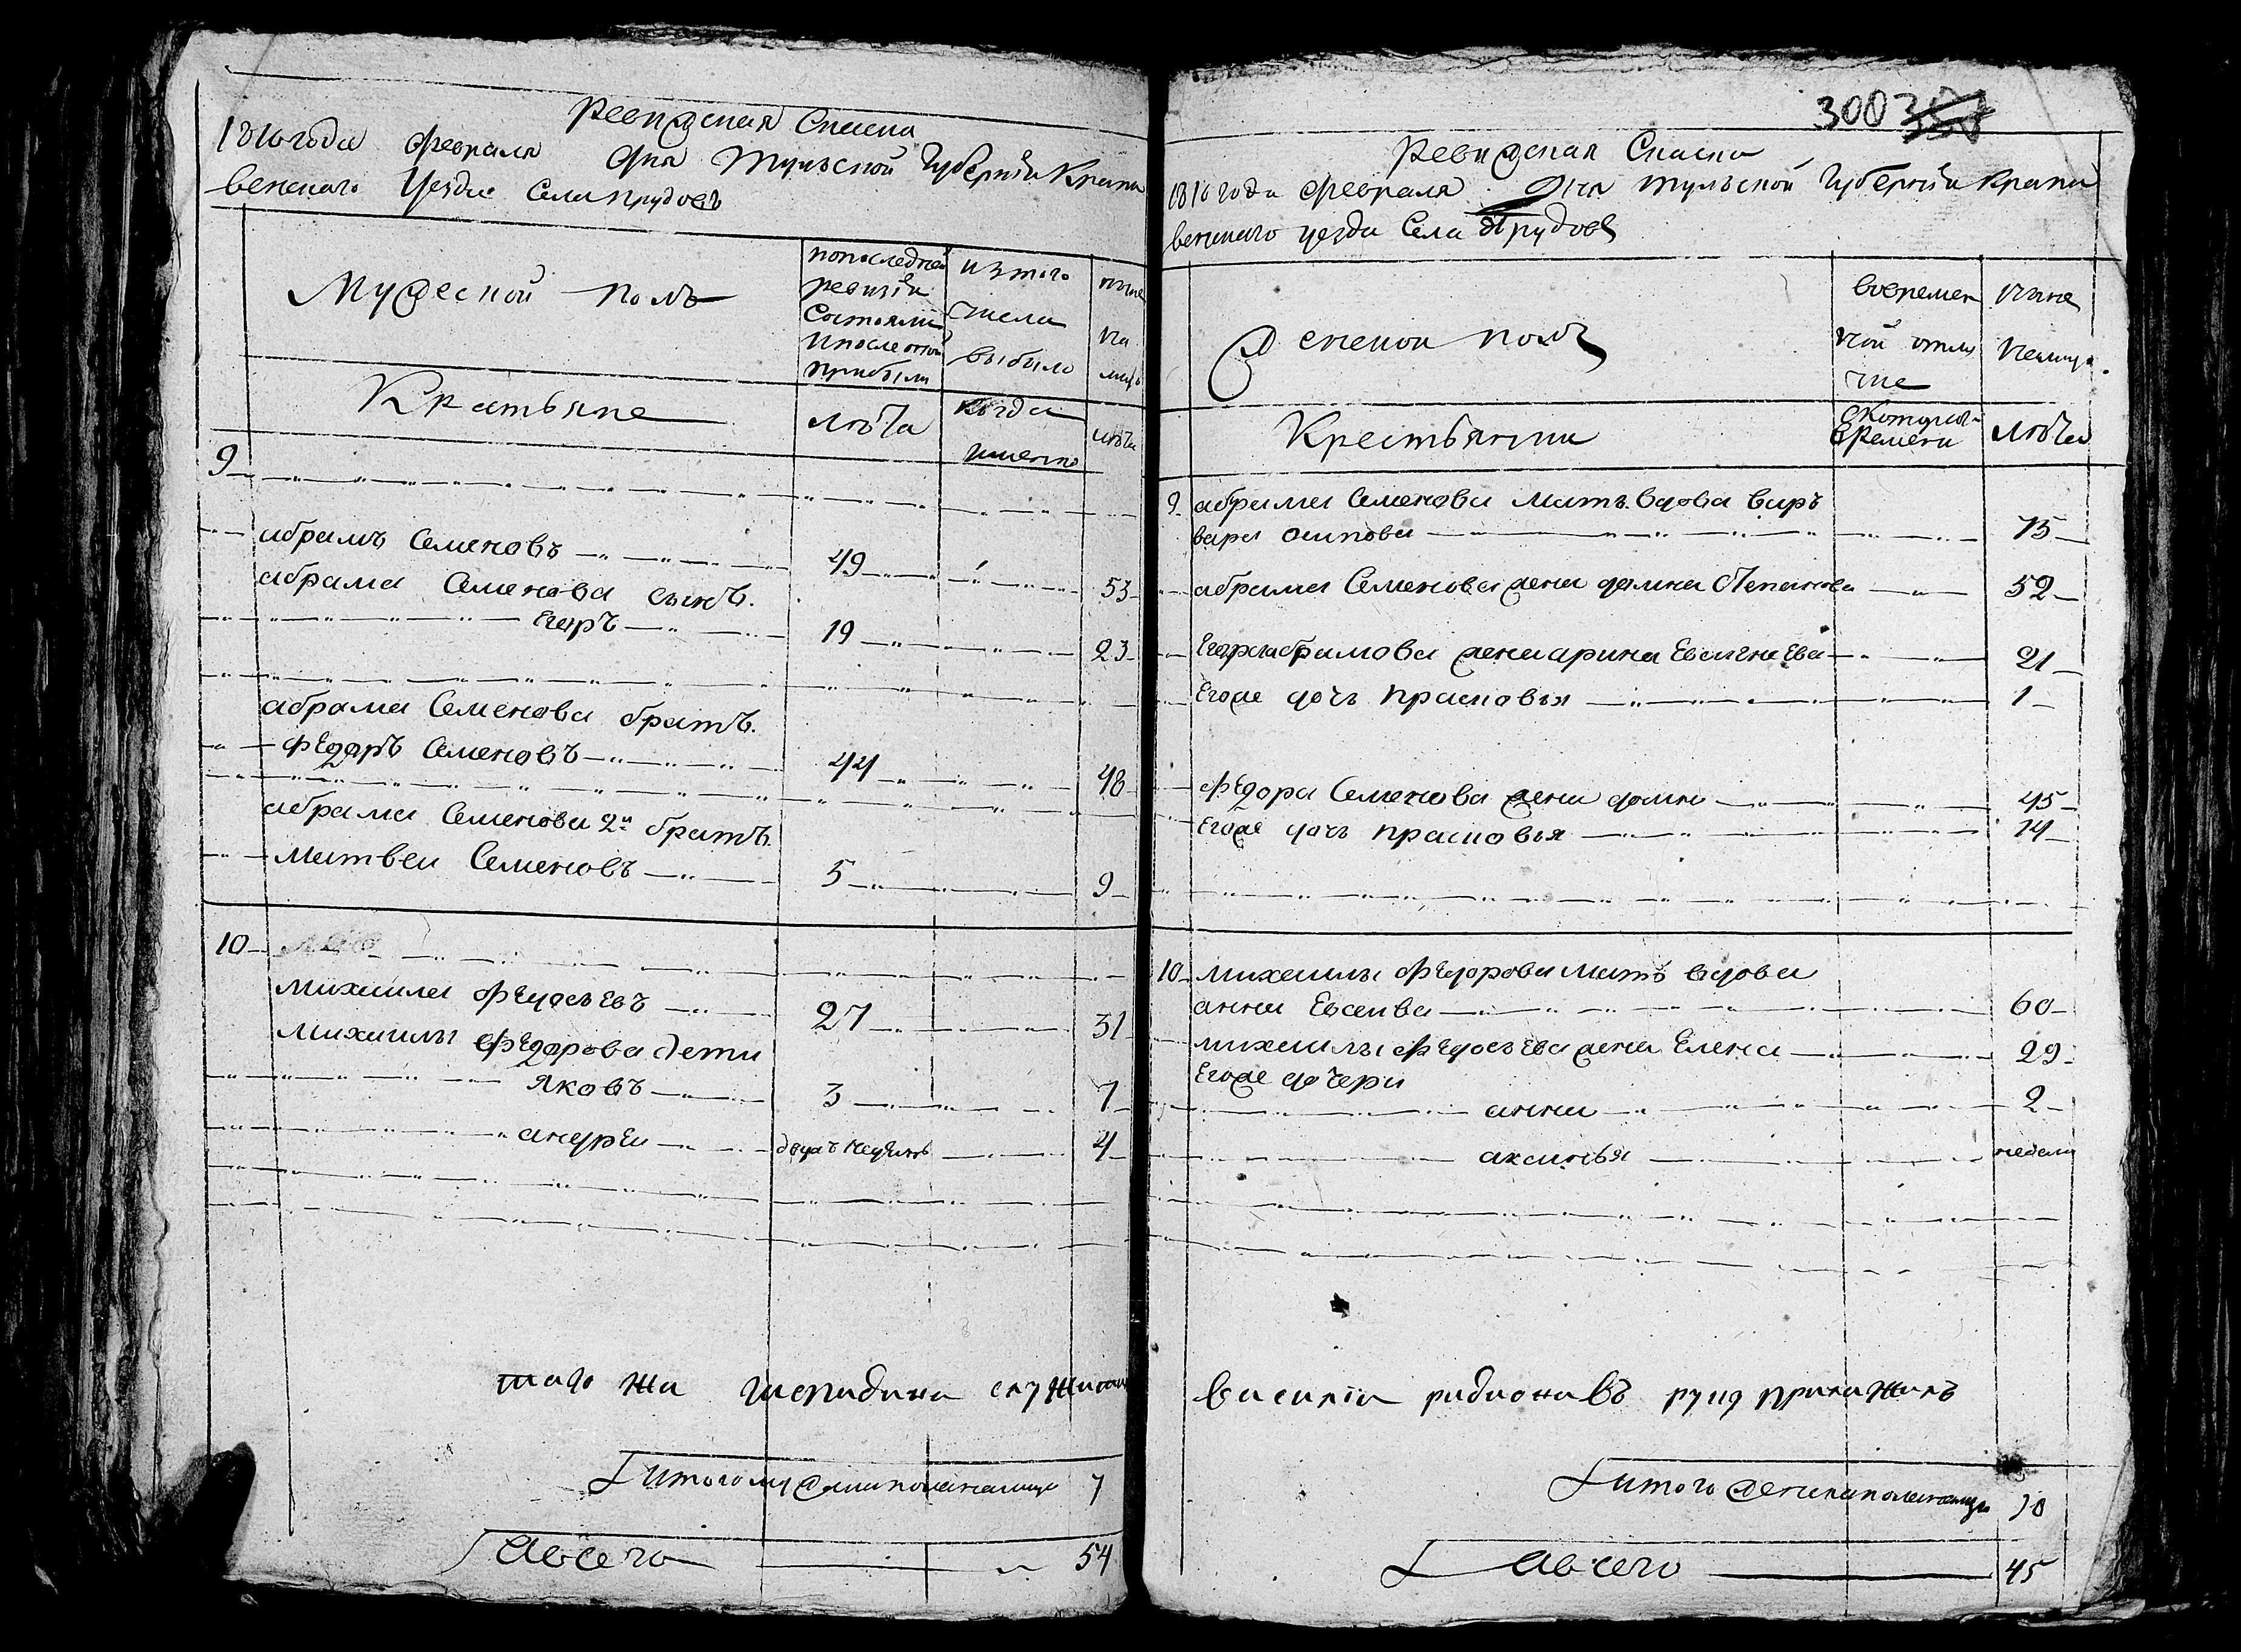 Ревижская Сказка
1816 года февраля дня Тульской Губернiи Крапи
венскаго Уезда Села прудовъ
Мужеской полъ
попоследней
ревизiи
Состояло
и после оной
прибыло
изтого
числа
выбыло
ныне
на
лицо
Крестьяне
лѣта
когда
именно
лѣта
9
абрамъ Семеновъ 49 53
абрама Семенова сынъ.
Егоръ 19 23
абрама Семенова братъ.
Фёдоръ Семеновъ 44 48
абрама Семенова 2й братъ.
Матвеи Семеновъ 5 9
10
михаила Федосъевъ 27 31
михаилы Фёдорова дети
Яковъ 3 7
андреи двухъ недель 4
таго жа гаспадина служитель
Итого мужеска пола налицо 7
Авсего 54
300
Ревижская Сказка
1816 года февраля дня тульской Губернiи Крапи
венскаго уезда Села Прудовъ
Женской полъ
вовремен
ной отлу
чке
ныне
налицо.
Скоторого
времени
лѣта
Крестьянки
9 абрама Семенова мать вдова вар
вара осипова 75
абрама Семенова жена домна Степанова 52
Егора абрамова жена арина Евсигнеева 21
Егоже дочь прасковья 1
Фёдора Семенова жена домна 45
Егоже дочь прасковья 14
10 михаилы Федорова мать вдова
анна Евсеива 60
михаилы Федосъева жена Елена 29
Егоже дочери
анна 2
аксинья недели
василiи радионавъ руку прилажилъ
Итого женска пола налицо 10
Авсего 45